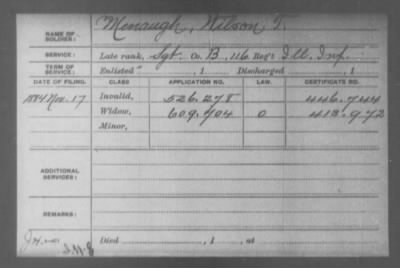 NAME OF SOLDIER: Menaugh, Wilson T.
SERVICE: Late rank, Sgt. Co. B, 116 Reg't Ill. Inf.
TERM OF SERVICE: Enlisted , 1 Discharged , 1
DATE OF FILING. CLASS APPLICATION NO. LAW. CERTIFICATE NO.
1884 Nov. 17 Invalid, 526.278 446.744
Widow, 609.704 0 413.972
Minor,
ADDITIONAL SERVICES:
REMARKS:
Died , 1 , at